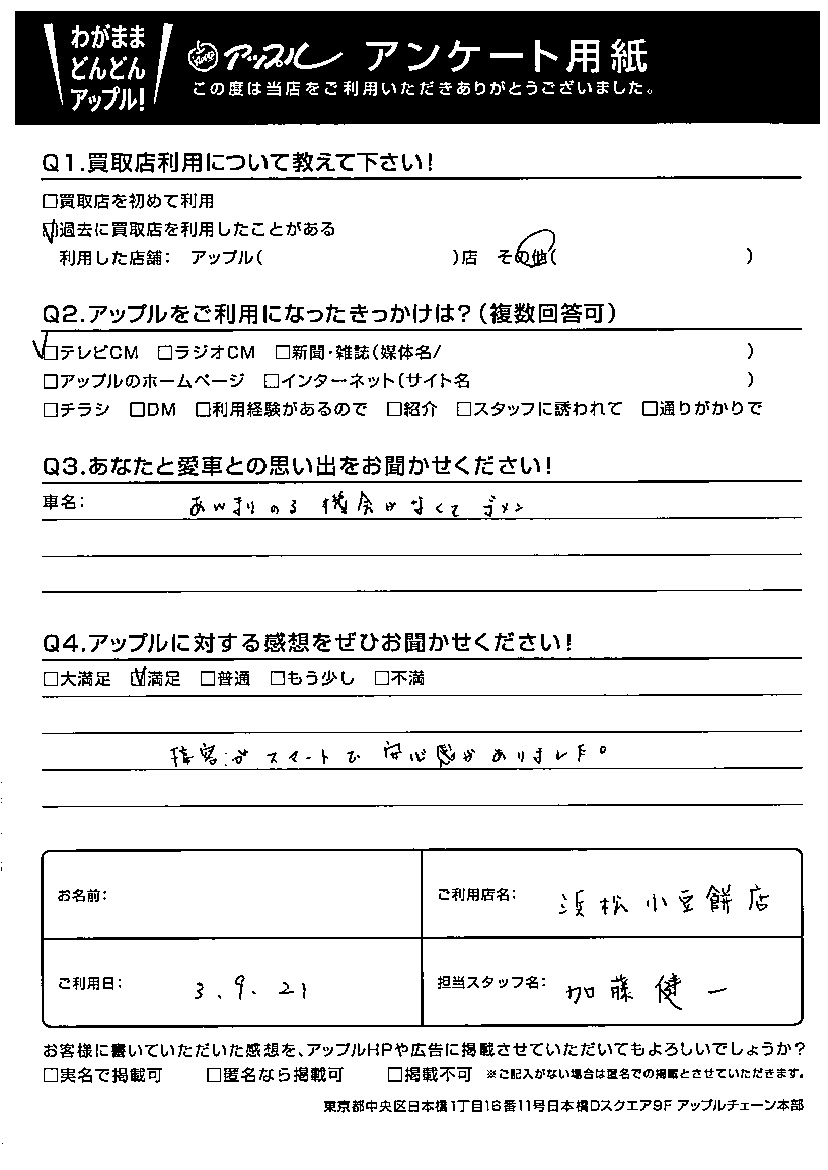 わがまま
どんどん
アップル!
アップル アンケート用紙
この度は当店をご利用いただきありがとうございました。
Q1.買取店利用について教えて下さい!
□買取店を初めて利用
☑過去に買取店を利用したことがある
利用した店舗: アップル( )店 その他( )
Q2.アップルをご利用になったきっかけは?(複数回答可)
☑テレビCM □ラジオCM □新聞・雑誌(媒体名/ )
□アップルのホームページ □インターネット(サイト名 )
□チラシ □DM □利用経験があるので □紹介 □スタッフに誘われて □通りがかりで
Q3.あなたと愛車との思い出をお聞かせください!
車名: あんまりのる機会がなくてゴメン
Q4.アップルに対する感想をぜひお聞かせください!
□大満足 ☑満足 □普通 □もう少し □不満
接客がスマートで安心感がありました。
お名前:
ご利用店名: 浜松小豆餅店
ご利用日: 3.9.21
担当スタッフ名: 加藤健一
お客様に書いていただいた感想を、アップルHPや広告に掲載させていただいてもよろしいでしょうか?
□実名で掲載可 □匿名なら掲載可 □掲載不可 ※ご記入がない場合は匿名での掲載とさせていただきます。
東京都中央区日本橋1丁目16番11号日本橋Dスクエア9F アップルチェーン本部